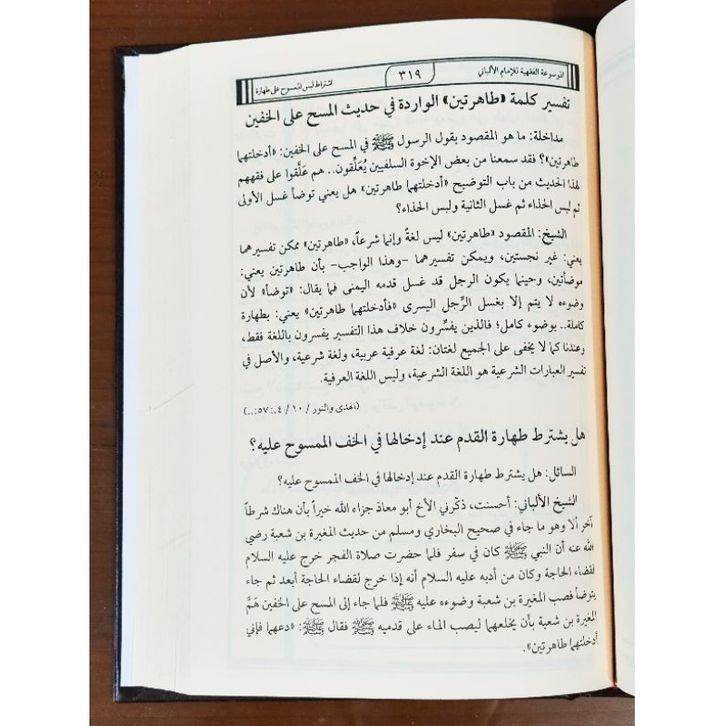 الموسوعة الفقهية للإمام الألباني
٣١٩
اشتراط لبس الممسوح على طهارة
تفسير كلمة «طاهرتين» الواردة في حديث المسح على الخفين
مداخلة: ما هو المقصود بقول الرسول ﷺ في المسح على الخفين: «أدخلتهما
طاهرتين»؟ فقد سمعنا من بعض الإخوة السلفيين يُعَلِّقون.. هم عَلَّقوا على فقههم
لهذا الحديث من باب التوضيح «أدخلتهما طاهرتين» هل يعني توضأ غسل الأولى
ثم لبس الحذاء ثم غسل الثانية ولبس الحذاء؟
الشيخ: المقصود «طاهرتين» ليس لغةً وإنما شرعاً، «طاهرتين» ممكن تفسيرهما
يعني: غير نجستين، ويمكن تفسيرهما -وهذا الواجب- بأن طاهرتين يعني:
موضأتين، وحينما يكون الرجل قد غسل قدمه اليمنى فما يقال: «توضأ» لأن
وضوءه لا يتم إلا بغسل الرِّجل اليسرى «فأدخلتهما طاهرتين» يعني: بطهارة
كاملة.. بوضوء كامل؛ فالذين يفسِّرون خلاف هذا التفسير يفسرون باللغة فقط،
وعندنا كما لا يخفى على الجميع لغتان: لغة عرفية عربية، ولغة شرعية، والأصل في
تفسير العبارات الشرعية هو اللغة الشرعية، وليس اللغة العرفية.
(الهدى والنور / ١٠ / ٤.: ٥٧: ..)
هل يشترط طهارة القدم عند إدخالها في الخف الممسوح عليه؟
السائل: هل يشترط طهارة القدم عند إدخالها في الخف الممسوح عليه؟
الشيخ الألباني: أحسنت، ذكّرني الأخ أبو معاذ جزاه الله خيراً بأن هناك شرطاً
آخر ألا وهو ما جاء في صحيح البخاري ومسلم من حديث المغيرة بن شعبة رضي
الله عنه أن النبي ﷺ كان في سفر فلما حضرت صلاة الفجر خرج عليه السلام
لقضاء الحاجة وكان من أدبه عليه السلام أنه إذا خرج لقضاء الحاجة أبعد ثم جاء
يتوضأ فصب المغيرة بن شعبة وضوءه عليه ﷺ فلما جاء إلى المسح على الخفين هَمَّ
المغيرة بن شعبة بأن يخلعهما ليصب الماء على قدميه ﷺ فقال ﷺ: «دعهما فإني
أدخلتهما طاهرتين».